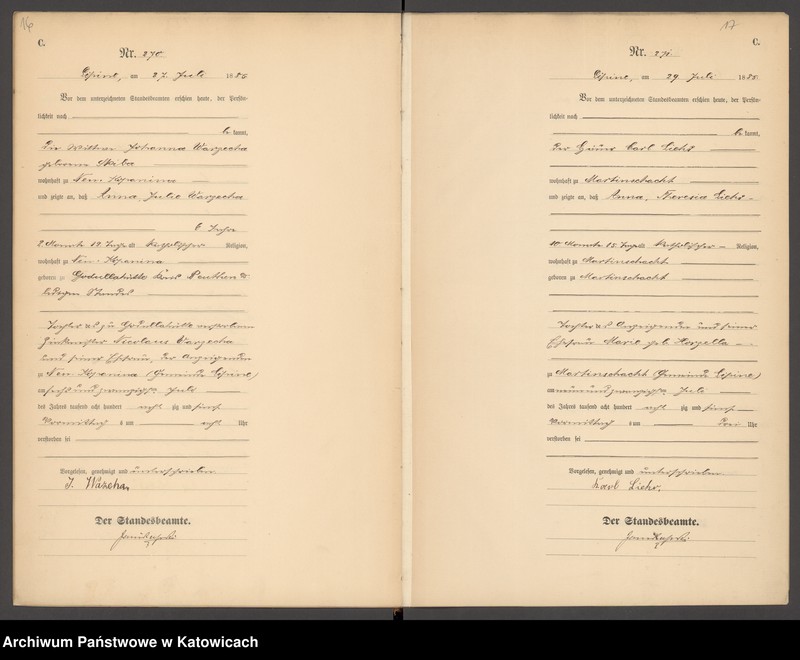 16
C.
Nr. 270
Lipine, am 27. Juli 1885
Vor dem unterzeichneten Standesbeamten erschien heute, der Persön-
lichkeit nach
be kannt,
die Wittwe Johanna Warzecha
geborene
wohnhaft zu Neu Kopanina
und zeigte an, daß Anna Julie Warzecha
6 Jahre
2 Monate 12 Tage alt katholischer Religion,
wohnhaft zu Neu-Kopanina
geboren zu Godullahütte Kreis Beuthen
ledigen Standes
Tochter des zu Godullahütte verstorbenen
Nicolaus Warzecha
und seiner Ehefrau, der Anzeigenden
zu Neu Kopanina (Gemeinde Lipine)
am sechs und zwanzigsten Juli
des Jahres tausend acht hundert acht zig und fünf
Vormittags um acht Uhr
verstorben sei
Vorgelesen, genehmigt und unterschrieben
J. Wazcha,
Der Standesbeamte.
17
C.
Nr. 271
Lipine, am 29 Juli 1885
Vor dem unterzeichneten Standesbeamten erschien heute, der Persön-
lichkeit nach
be kannt,
der Carl Liehr
wohnhaft zu Martinschacht
und zeigte an, daß Anna, Theresia Liehr
10 Monate 15 Tage alt katholischer Religion,
wohnhaft zu Martinschacht
geboren zu Martinschacht
Tochter des Anzeigenden und seiner
Ehefrau Marie geb.
zu Martinschacht (Gemeinde Lipine)
am neun und zwanzigsten Juli
des Jahres tausend acht hundert acht zig und fünf
Vormittags um Uhr
verstorben sei
Vorgelesen, genehmigt und unterschrieben
Karl Liehr.
Der Standesbeamte.
Archiwum Państwowe w Katowicach